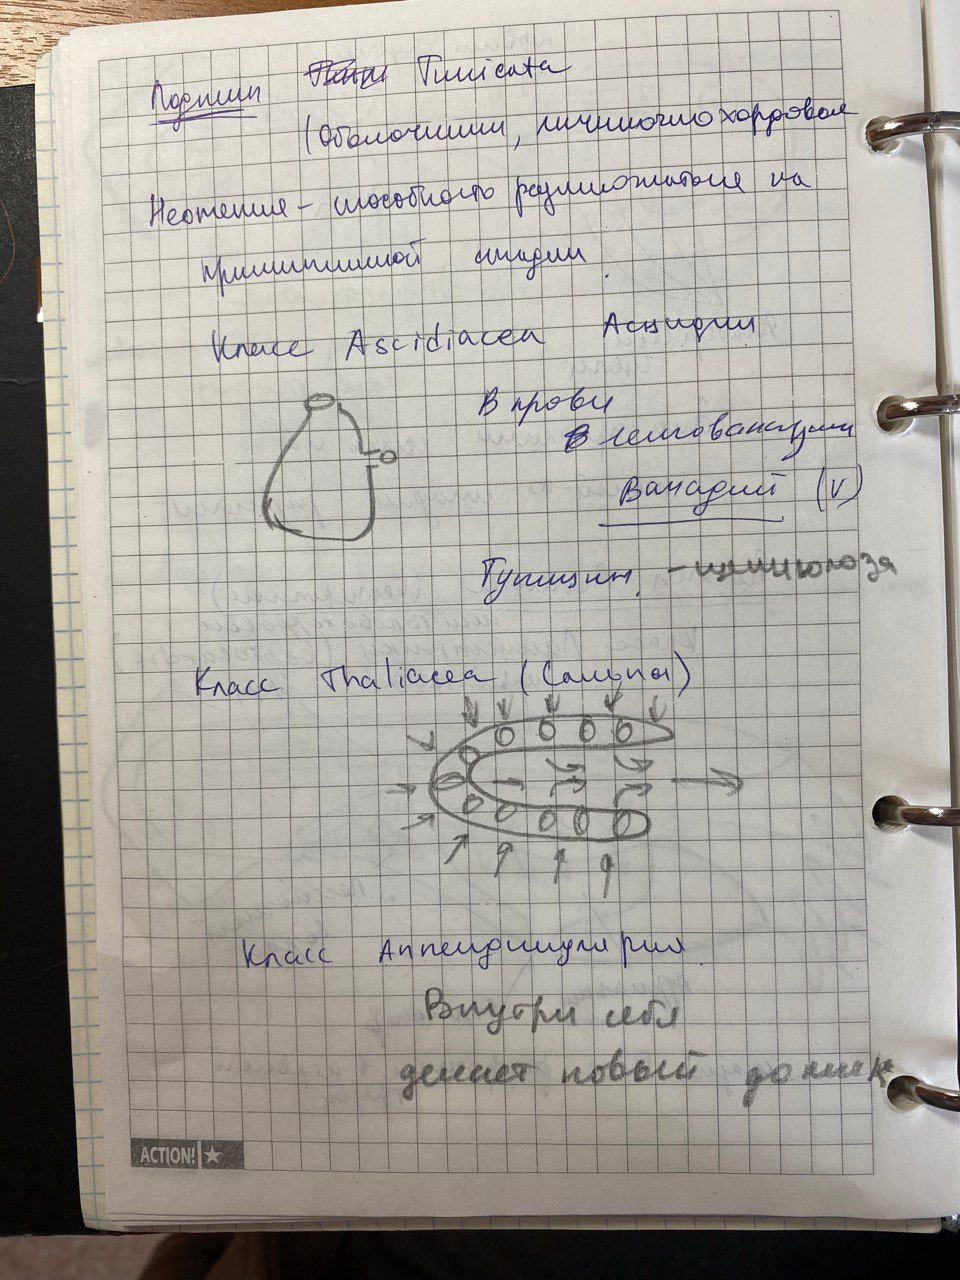 Подтип Tunicata
(Оболочники, личиночнохордовые
Неотения – способность размножаться на
личиночной стадии.
Класс Ascidiacea Асцидии
В крови
Ванадий (V)
Туницин. - целлюлоза
Класс Thaliacea (Сальпы)
Класс Аппендикулярия.
Внутри себя
делает новый домик
ACTION!